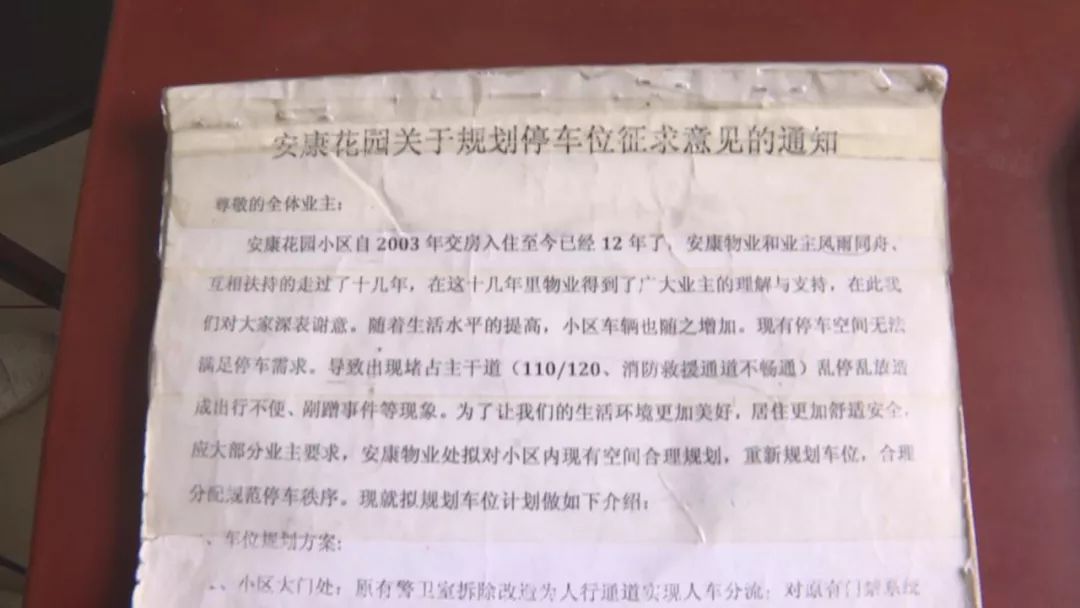 安康花园关于规划停车位征求意见的通知
尊敬的全体业主:
安康花园小区自 2003 年交房入住至今已经 12 年了，安康物业和业主风雨同舟、
互相扶持的走过了十几年，在这十几年里物业得到了广大业主的理解与支持，在此我
们对大家深表谢意。随着生活水平的提高，小区车辆也随之增加。现有停车空间无法
满足停车需求。导致出现堵占主干道（110/120、消防救援通道不畅通）乱停乱放造
成出行不便、剐蹭事件等现象。为了让我们的生活环境更加美好，居住更加舒适安全，
应大部分业主要求，安康物业处拟对小区内现有空间合理规划，重新规划车位，合理
分配规范停车秩序。现就拟规划车位计划做如下介绍:
、车位规划方案:
小区大门处；原有警卫室拆除改造为人行通道实现人车分流；对原有门禁系统